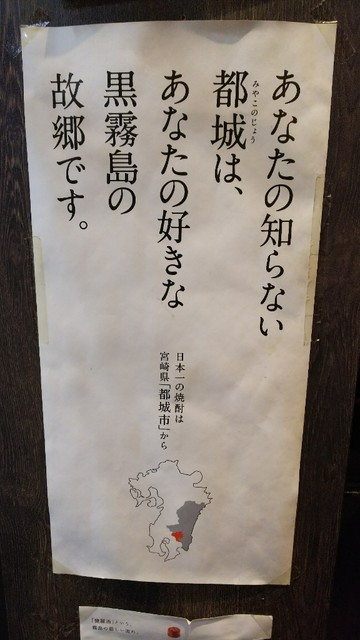 あなたの知らない
みやこのじょう
都城は、
あなたの好きな
黒霧島の
故郷です。
日本一の焼酎は
宮崎県「都城市」から